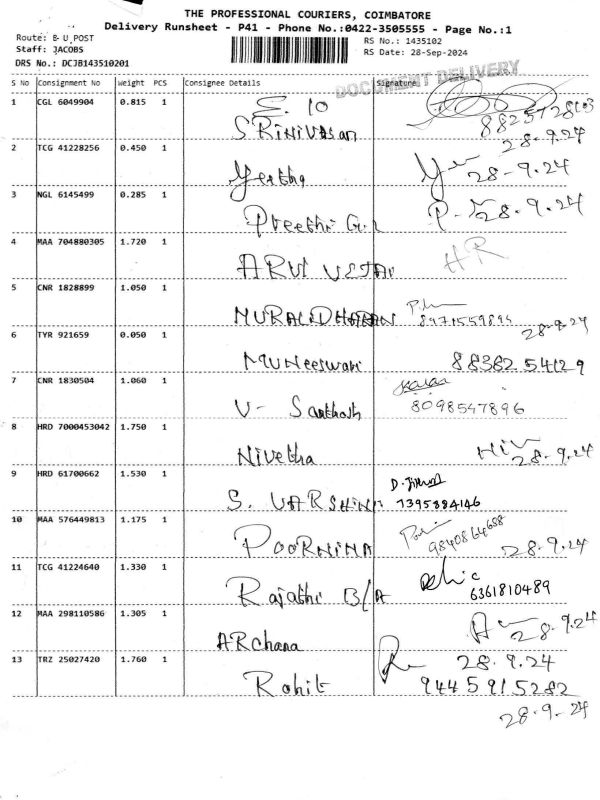 THE PROFESSIONAL COURIERS, COIMBATORE
Delivery Runsheet - P41 - Phone No.:0422-3505555 - Page No.:1
Route: B U_POST
Staff: JACOBS
DRS No.: DCJB143510201
RS No.: 1435102
RS Date: 28-Sep-2024
DOCUMENT DELIVERY
S No Consignment No Weight PCS Consignee Details Signature
1 CGL 6049904 0.815 1 E. 10
SRINIVASan
28.9.24
2 TCG 41228256 0.450 1 28-9.24
3 NGL 6145499 0.285 1 Preethi G. 28.9.24
4 MAA 704880305 1.720 1 ARUL HR
5 CNR 1828899 1.050 1
MURALIDHARAN 28-9.24
6 TYR 921659 0.050 1
MUNeeswari 88382 54129
7 CNR 1830504 1.060 1
V- Santhosh 8098547896
8 HRD 7000453042 1.750 1
Nivetha Niv 28.9.24
9 HRD 61700662 1.530 1
S. VARSHINI 7395884146
10 MAA 576449813 1.175 1
POORNIMA 9840864688 28.9.24
11 TCG 41224640 1.330 1
Rajathi B/A 6361810489
12 MAA 298110586 1.305 1
ARchana 28.9.24
13 TRZ 25027420 1.760 1 28.9.24
Rohit 9445915282
28-9-24